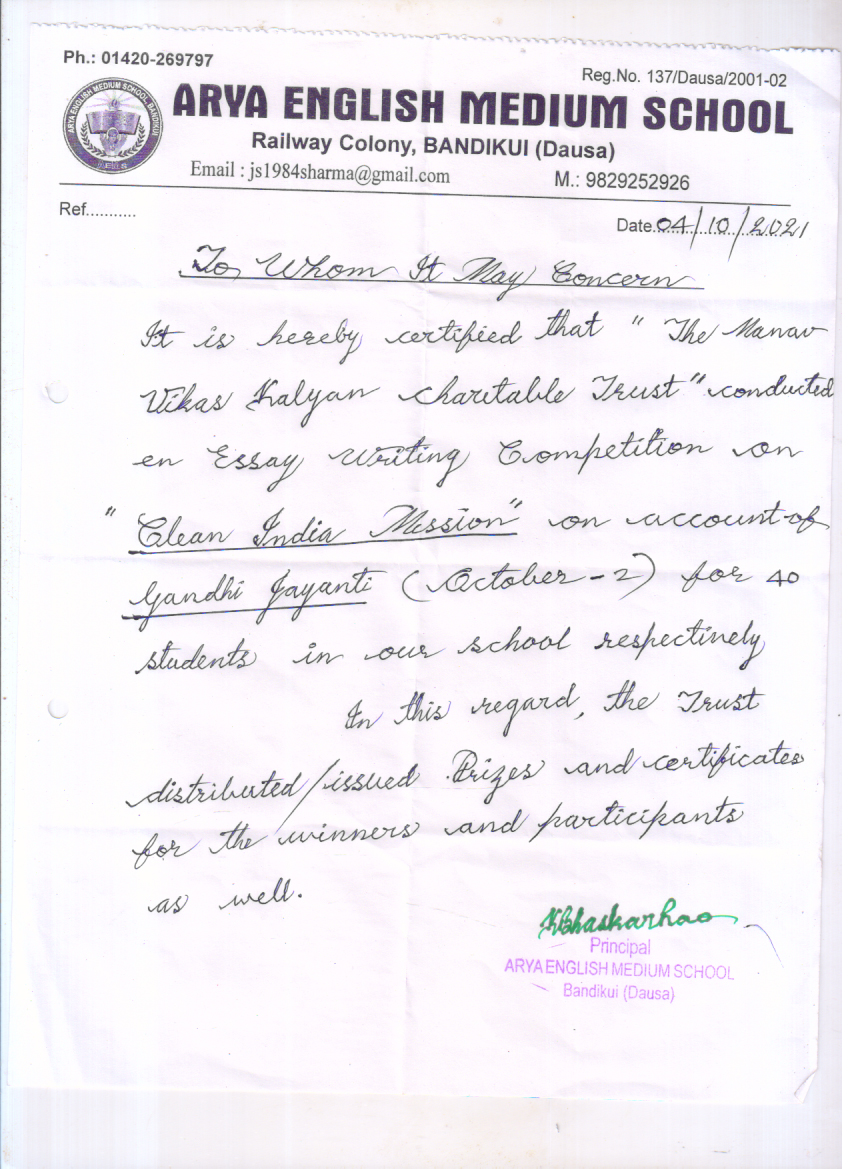 Ph.: 01420-269797
Reg.No. 137/Dausa/2001-02
ARYA ENGLISH MEDIUM SCHOOL, BANDIKUI
ARYA ENGLISH MEDIUM SCHOOL
Railway Colony, BANDIKUI (Dausa)
Email : js1984sharma@gmail.com
M.: 9829252926
Ref...........
Date.04/10/2021
To Whom It May Concern
It is hereby certified that " The Manav
Vikas Kalyan charitable Trust" conducted
en Essay Writing Competition on
" Clean India Mission" on account of
Gandhi Jayanti (October-2) for 40
students in our school respectinely
In this regard, the Trust
distributed/issued Prizes and certificates
for the winners and participants
as well.
KBhaskarhao
Principal
ARYA ENGLISH MEDIUM SCHOOL
Bandikui (Dausa)